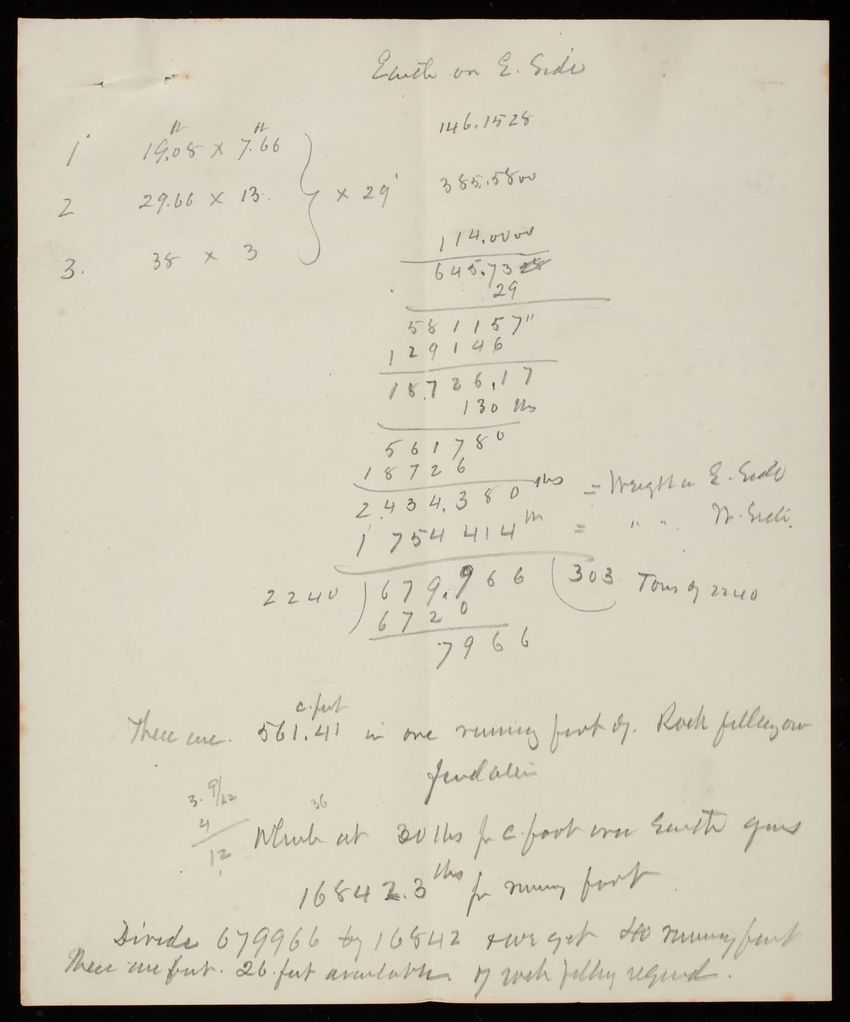 Earth on E. Side
1 19.08 x 7.66 146.1528
2 29.66 x 13. } x 29' 385.5800
3. 38 x 3 114.0000
645.7328
29
581157"
129146
18726.17
130 lbs
561780
18726
2.434.380 lbs = Weight on E. Side
1 754 414 lbs = " " W. Side.
2240 ) 679.966 ( 303 Tons of 2240
6720
7966
c. feet
There are. 561.41 in one running foot of. Rock filling on
3. 9/12 36
4 Which at 30 lbs pr c. foot over Earth gives
12
16842.3 lbs pr running foot
Divide 679966 by 16842 & we get 40 running feet
There are but. 26 feet available. of rock filling required.